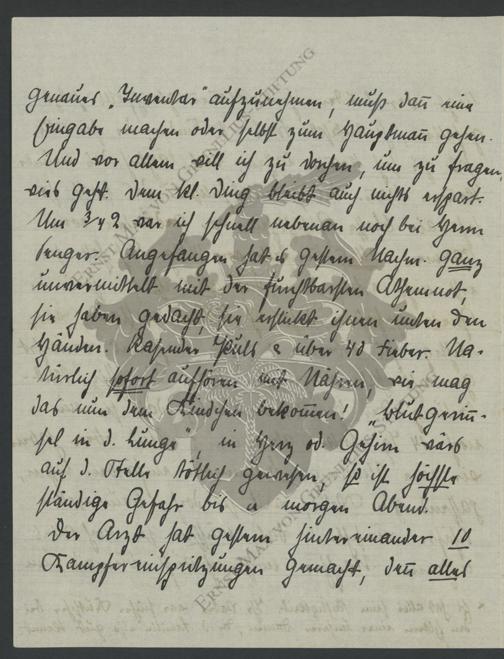 genaues „Inventar" aufzunehmen, muß dañ eine
Eingabe machen oder selbst zum Hauptmañ gehen.
Und vor allem will ich zu Dorchen, um zu fragen,
wies geht. Dem kl. Ding bleibt auch nichts erspart.
Um 3/4 2 war ich schnell nebenan noch bei Herrn
Penger. Angefangen hat es gestern Nachm. ganz
unvermittelt mit der furchtbarsten Atemnot,
sie haben gedacht, sie erstickt ihnen unter den
Händen. Rasender Puls u über 40 Fieber. Na-
türlich sofort aufhören mit Nähren, wie mag
das nun dem Kindchen bekom̃en! „Blutgerinn-
sel in d. Lunge", in Herz od. Gehirn wärs
auf d. Stelle tötlich gewesen, so ist höchste
ständige Gefahr bis morgen Abend.
Der Arzt hat gestern hintereinander 10
Kampfereinspritzungen gemacht, deñ alles
ERNST MAX VON GRUNELIUS-STIFTUNG
ERNST MAX VON GRUNELIUS-STIFTUNG